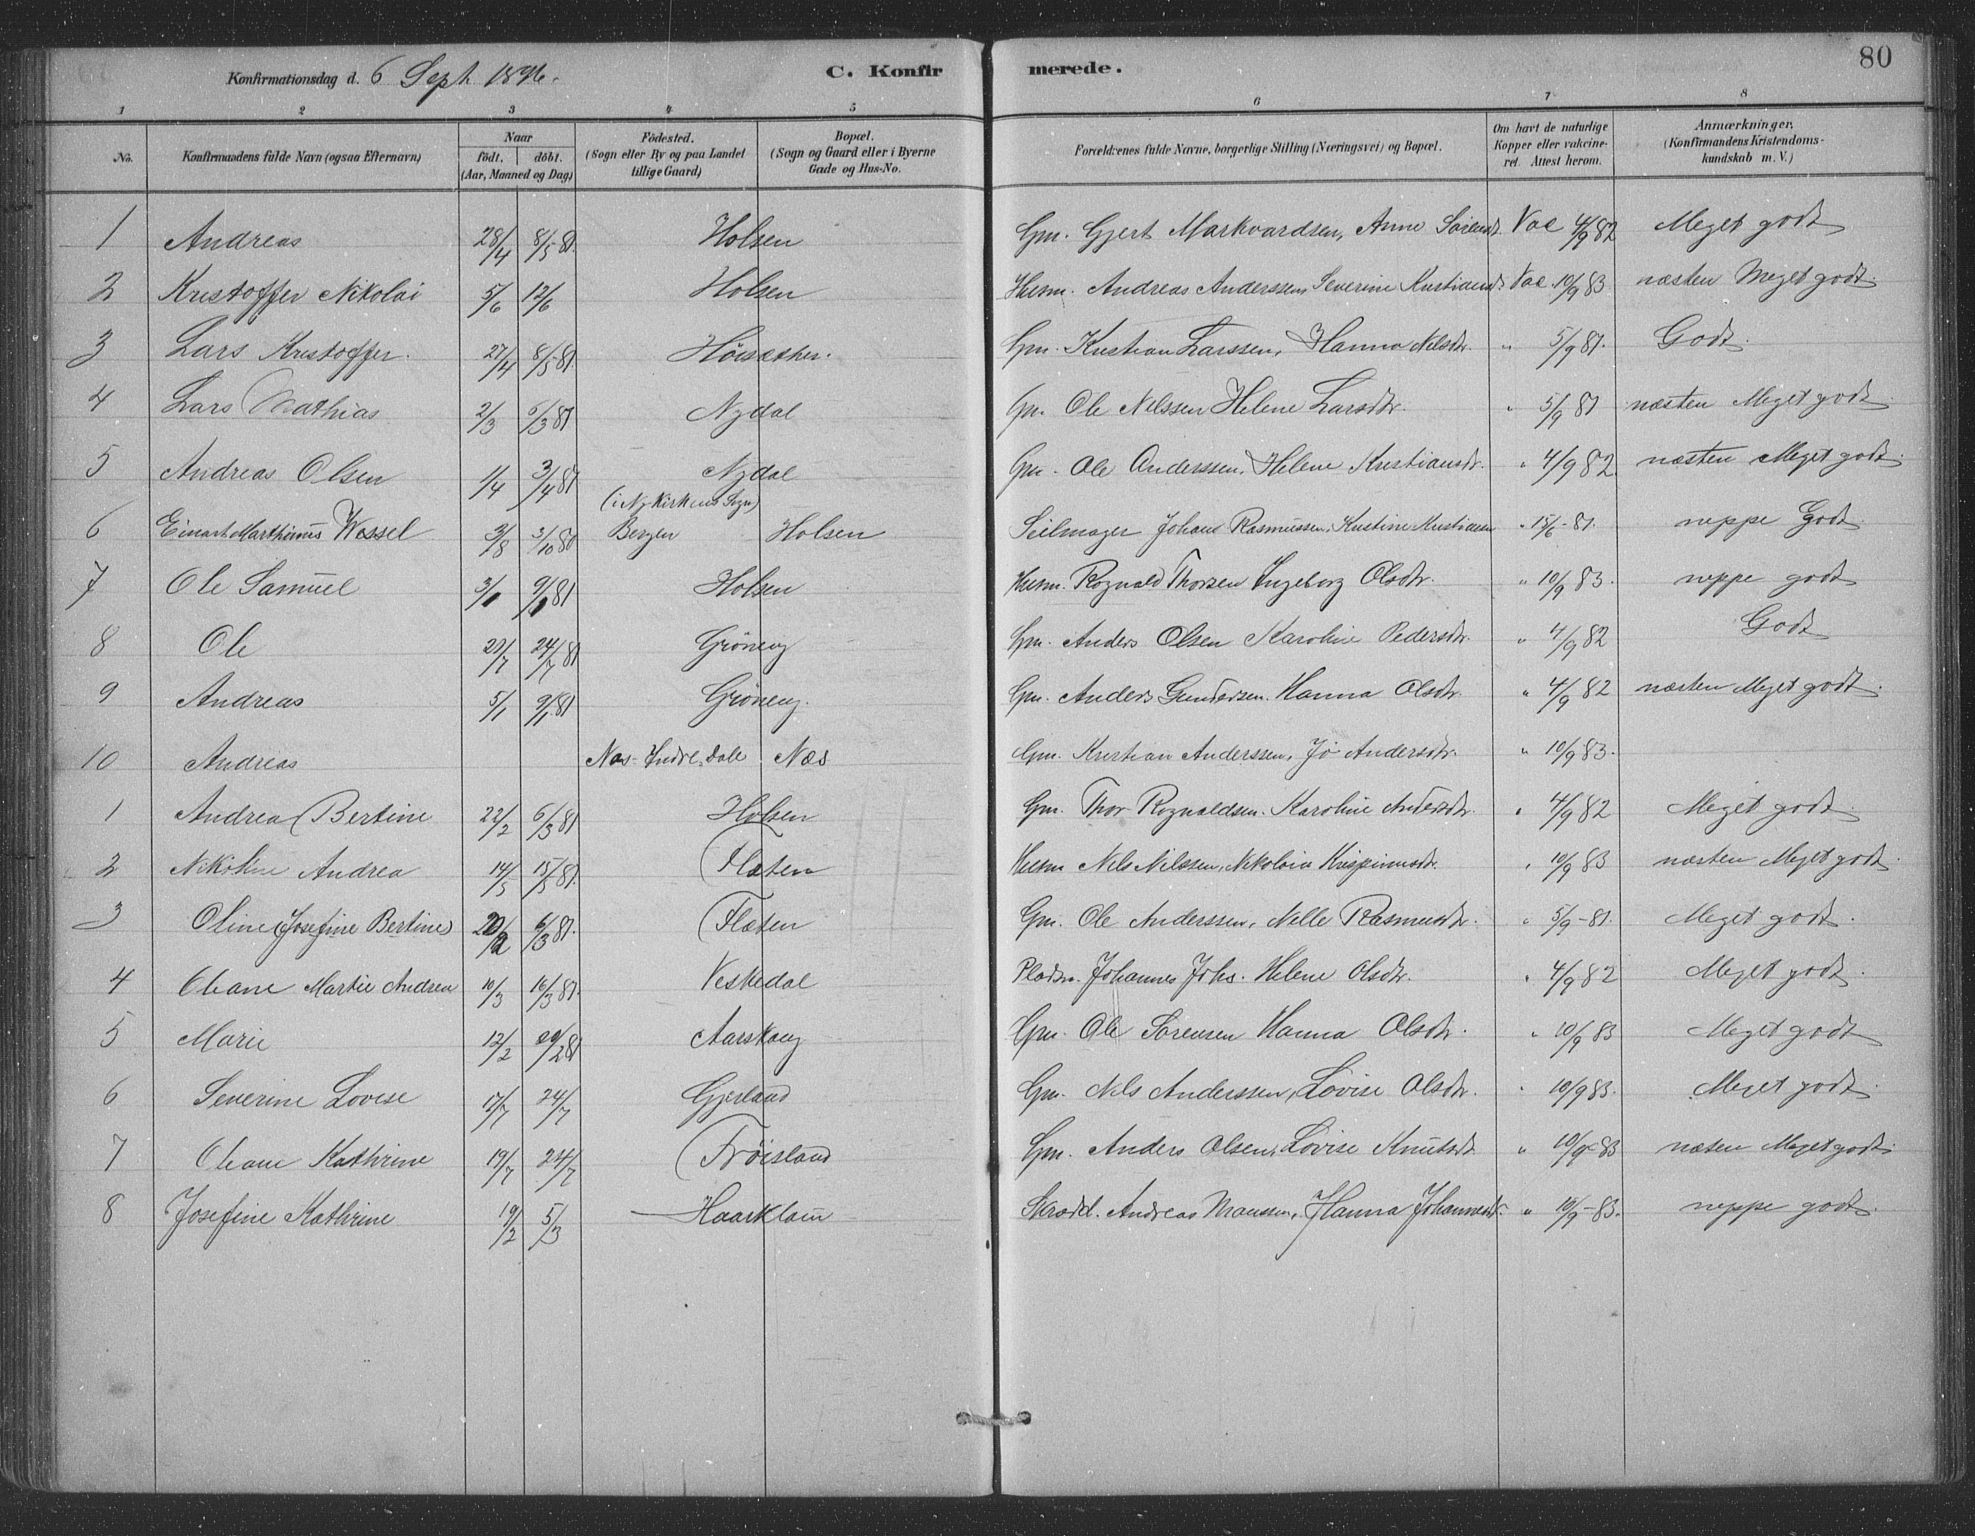 80
Konfirmationsdag d. 6 Sept. 1896.
C. Konfirmerede.
1 2 3 4 5 6 7 8
No. Konfirmandens fulde Navn (ogsaa Efternavn) Naar født, døbt. (Aar, Maaned og Dag) Fødested. (Sogn eller By og paa Landet tillige Gaard) Bopæl. (Sogn og Gaard eller i Byerne Gade og Hus-No. Forældrenes fulde Navne, borgerlige Stilling (Næringsvei) og Bopæl. Om havt de naturlige Kopper eller vakcineret. Attest herom. Anmærkninger. (Konfirmandens Kristendomskundskab m. V.)
1 Andreas 28/4 8/5 81. Holsen Gm. Gjert Markvardsen, Anne Sørensdt. Vac 4/9 82 Meget godt
2 Kristoffer Nikolai 5/6 12/6 Holsen Husm. Andreas Anderssen, Severine Kristiansdt. Vac. 10/9 83 næsten Meget godt.
3 Lars Kristoffer. 27/4 8/5 81. Høisæther. Gm. Kristian Larssen, Hanna Nilsdtr. " 5/9 81. Godt.
4 Lars Mathias 2/3 6/3 81 Nydal Gm. Ole Nilssen Helene Larsdtr. " 5/9 81 næsten Meget godt.
5 Andreas Olsen 1/4 3/4 81 Nydal Gm. Ole Anderssen, Helene Kristiansdtr. " 4/9 82 næsten Meget godt.
6 Einart Marthinus Wessel 3/8 3/10 80 (i Ny-Kirkens Sogn) Bergen Holsen Seilmager Johans Rasmussen, Kristine Kristiansen " 15/6-81. neppe Godt.
7 Ole Samuel 3/1 9/1 81 Holsen Husm. Rognald Thorsen Ingeborg Olsdtr. " 10/9 83. neppe godt
8 Ole 21/7 24/7 81 Grøneng Gm. Anders Olsen Karoline Pedersdtr. " 4/9 82 Godt
9 Andreas 5/1 9/1 81 Grøneng. Gm. Anders Gundersen. Hanna Olsdtr. " 4/9 82 næsten Meget godt.
10 Andreas Næs- Indre Dale Næs Gm. Kristian Anderssen, Jo Andersdtr. " 10/9 83.
1 Andrea Bertine 22/2 6/3 81 Holsen Gm. Thor Rognaldsen. Karoline Andersdtr. " 4/9 82 Meget godt.
2 Nikoline Andrea 14/5 15/5 81. Flæten Husm Nils Nilssen, Nikolaia Krispinusdtr. " 10/9 83 næsten Meget godt.
3 Oline (Josefine Bertine) 20/2 6/3 81. Flæten Gm. Ole Anderssen, Nille Rasmusdtr. " 5/9-81. Meget godt.
4 Oliane Martie Andrea 10/3 16/3 81. Veskedal Pladsm. Johannes Johs. Helene Olsdtr. " 4/9 82 Meget godt.
5 Marie 12/2 20/2 81 Aarskog Gm. Ole Sørensen Hanna Olsdtr. " 10/9 83 Meget godt.
6 Severine Lovise 17/7 24/7 Gjesland Gm. Nils Anderssen, Lovise Olsdtr. " 10/9 83. Meget godt.
7 Oliane Kathrine 19/7 24/7 Frøisland Gm. Anders Olsen, Lovise Knutsdt. " 10/9-83 næsten Meget godt.
8 Josefine Kathrine 19/2 5/3 Haarklau Skrædd. Andreas Monssen, Hanna Johannesdtr. " 10/9-83. neppe godt.